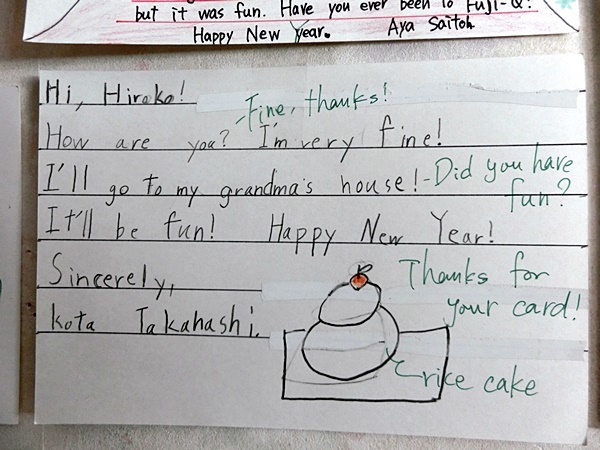 but it was fun. Have you ever been to Fuji-Q?
Happy New Year. Aya Saitoh
Hi, Hiroko!
-Fine, thanks!
How are you? I'm very fine!
I'll go to my grandma's house! -Did you have
fun?
It'll be fun! Happy New Year!
Sincerely,
Thanks for
your card!
kota Takahashi.
rice cake